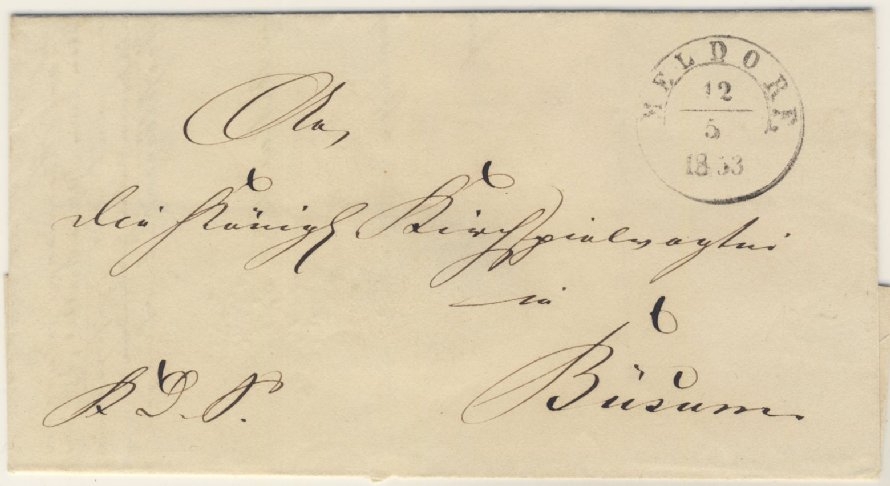 MELDORF.
12
5
1853
An
die Königl Kirchspielvogtei
in
Büsum.
K. D. S.